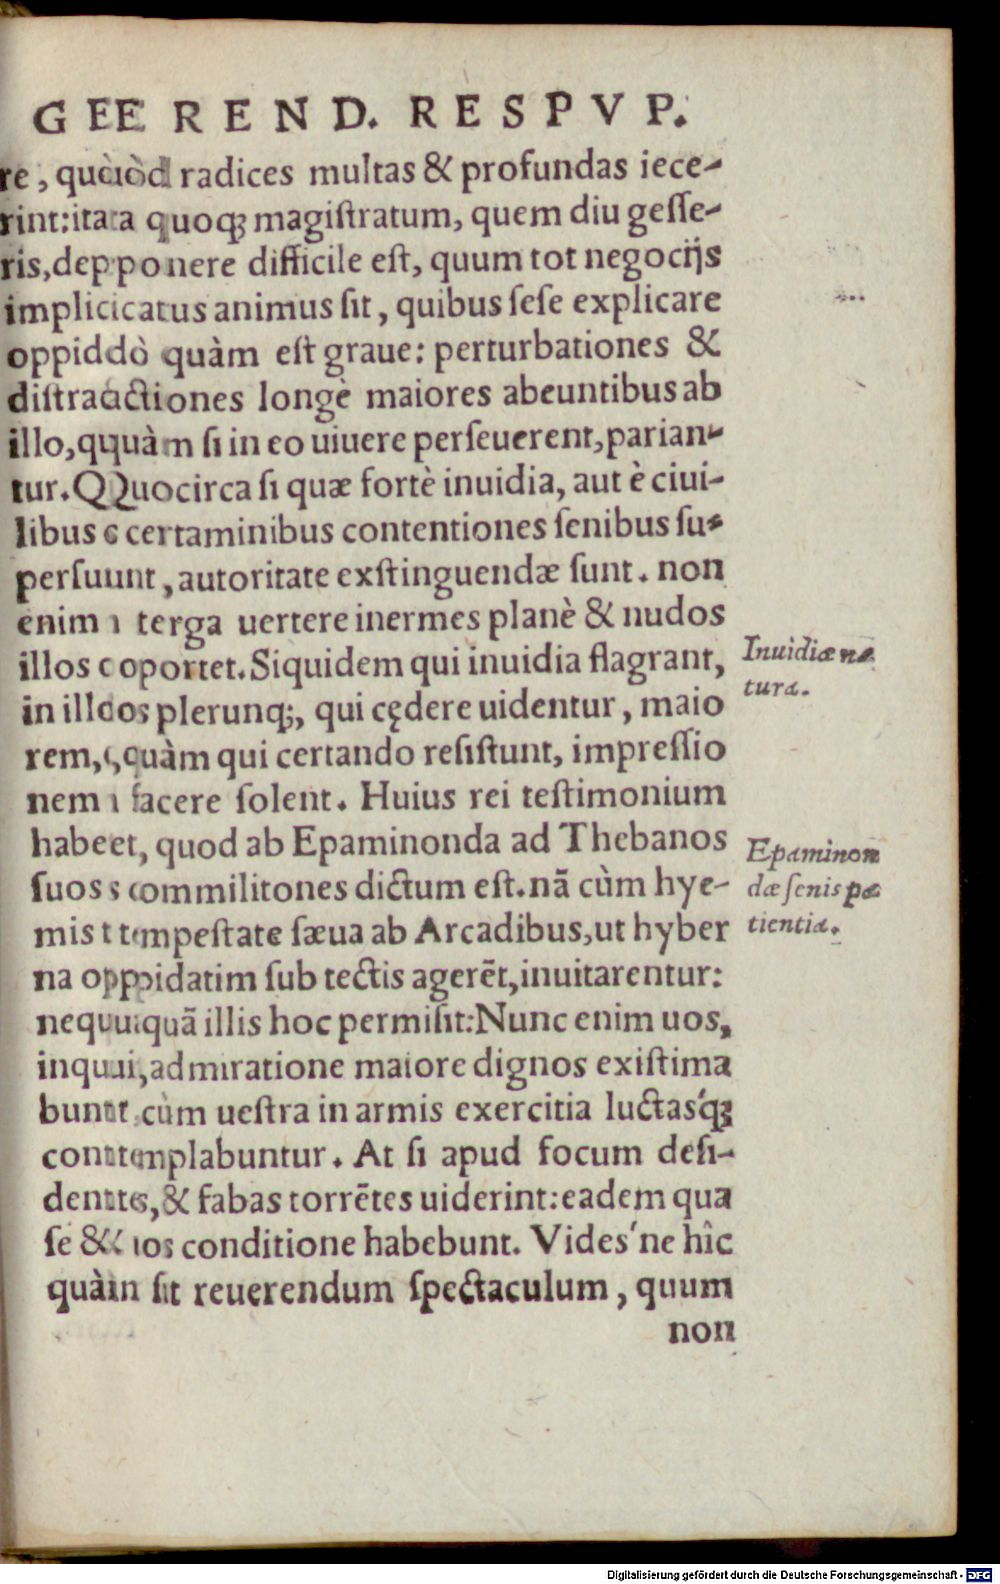 GEREND. RESPVP.
re, quòd radices multas & profundas iece-
rint: ita quoq; magistratum, quem diu gesse-
ris, deponere difficile est, quum tot negocijs
implicatus animus sit, quibus sese explicare
oppidò quàm est graue: perturbationes &
distractiones longè maiores abeuntibus ab
illo, quàm si in eo uiuere perseuerent, parian-
tur. Quocirca si quæ fortè inuidia, aut è ciui-
libus certaminibus contentiones senibus su-
persunt, autoritate exstinguendæ sunt. non
enim terga uertere inermes planè & nudos
illos oportet. Siquidem qui inuidia flagrant,
in illos plerunq;, qui cędere uidentur, maio
rem, quàm qui certando resistunt, impressio
nem facere solent. Huius rei testimonium
habet, quod ab Epaminonda ad Thebanos
suos commilitones dictum est. nã cùm hye-
mis tempestate sæua ab Arcadibus, ut hyber
na oppidatim sub tectis agerẽt, inuitarentur:
nequiquã illis hoc permisit: Nunc enim uos,
inquit, admiratione maiore dignos existima
bunt cùm uestra in armis exercitia luctas'q;
contemplabuntur. At si apud focum desi-
dentes, & fabas torrẽtes uiderint: eadem qua
se & uos conditione habebunt. Vides'ne hîc
quàm sit reuerendum spectaculum, quum
non
Inuidiæ na
tura.
Epaminon
dæ senis pa
tientia.
Digitalisierung gefördert durch die Deutsche Forschungsgemeinschaft - DFG